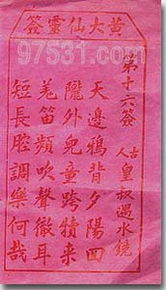 黃大仙靈簽
97531.com
第十六簽
古人 皇叔過水鏡
天邊鴉背夕陽回
隴外兒童跨犢来
羌笛頻吹聲徹耳
短長腔調樂何哉